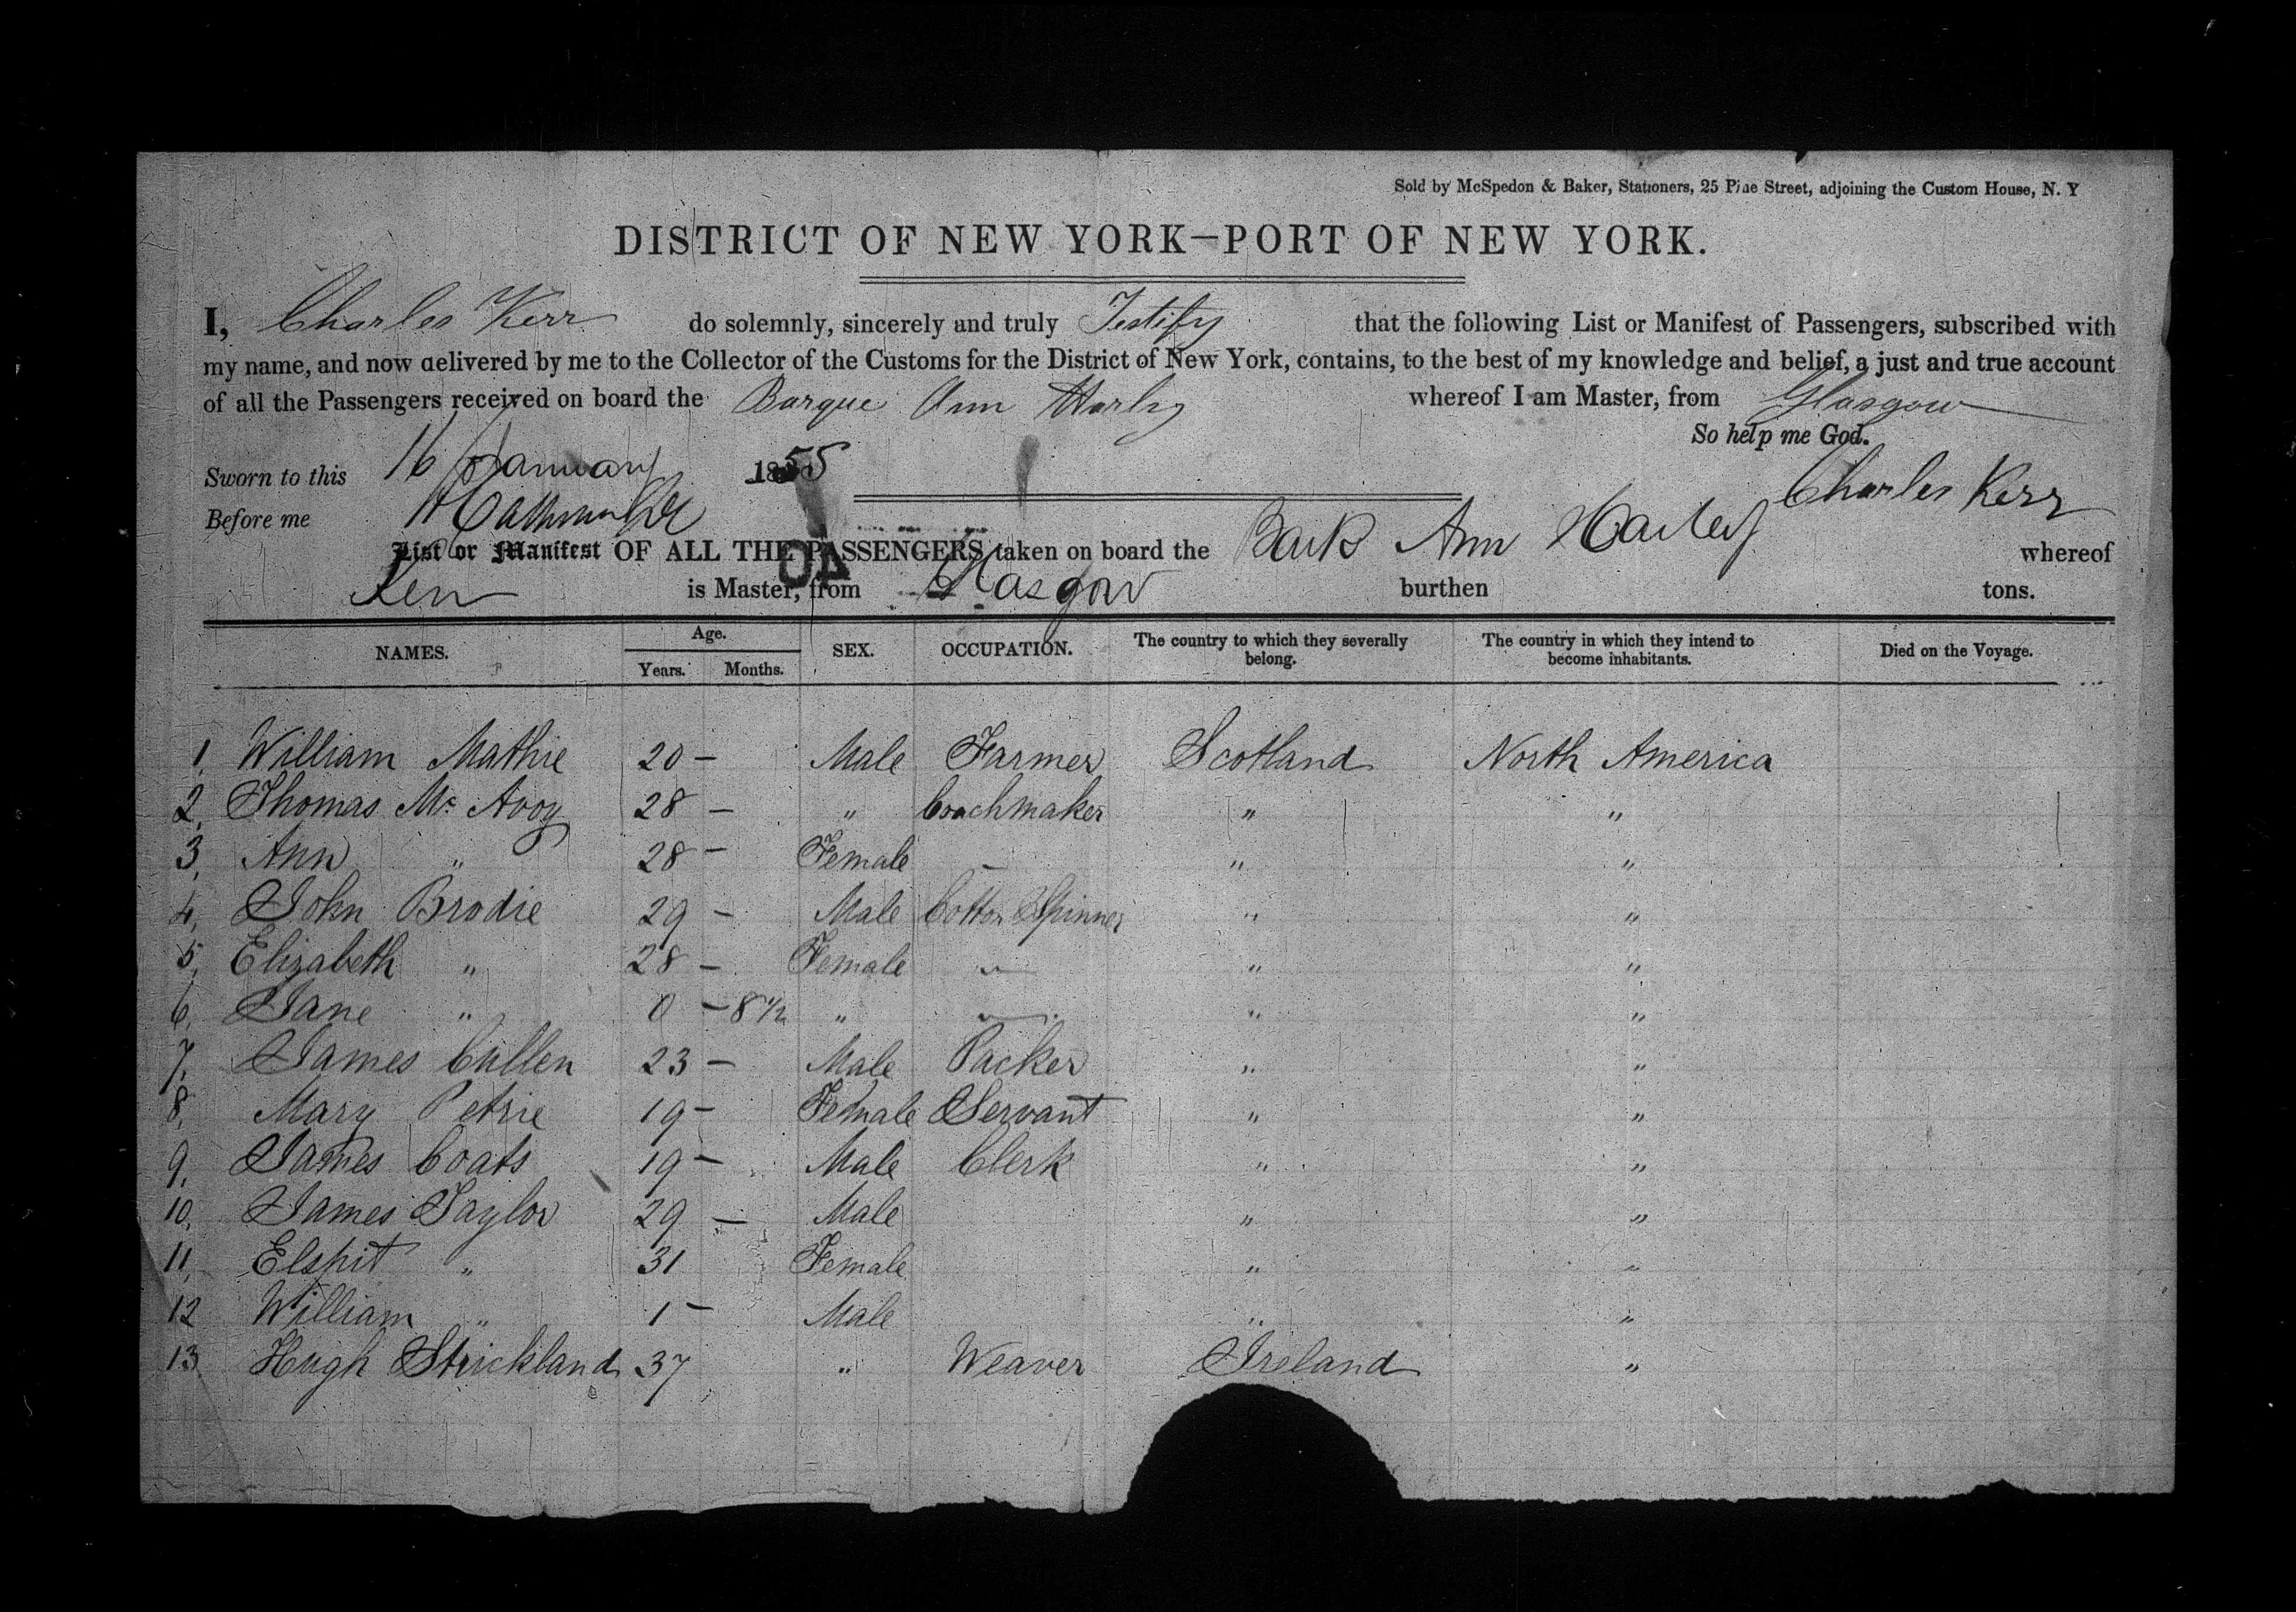 Sold by McSpedon & Baker, Stationers, 25 Pine Street, adjoining the Custom House, N. Y
DISTRICT OF NEW YORK—PORT OF NEW YORK.
I, Charles Kerr do solemnly, sincerely and truly Testify that the following List or Manifest of Passengers, subscribed with
my name, and now delivered by me to the Collector of the Customs for the District of New York, contains, to the best of my knowledge and belief, a just and true account
of all the Passengers received on board the Barque Ann Harley whereof I am Master, from Glasgow
So help me God.
Sworn to this 16 January 1855
Charles Kerr
Before me
List or Manifest OF ALL THE PASSENGERS taken on board the Bark Ann Harley whereof
Kerr is Master, from Glasgow burthen tons.
NAMES. Age. Years. Months. SEX. OCCUPATION. The country to which they severally belong. The country in which they intend to become inhabitants. Died on the Voyage.
1. William Mathie 20 – Male Farmer Scotland North America
2. Thomas Mc Avoy 28 – " Coachmaker " "
3. Ann " 28 – Female – " "
4. John Brodie 29 – Male Cotton Spinner " "
5. Elizabeth " 28 – Female " " "
6. Jane " 0 – 8 1/2 " " " "
7. James Cullen 23 – Male Packer " "
8. Mary Petrie 19 – Female Servant " "
9. James Coats 19 – Male Clerk " "
10. James Taylor 29 – Male " "
11. Elspit " 31 Female " "
12 William " 1 – Male " "
13 Hugh Strickland 37 " Weaver Ireland "